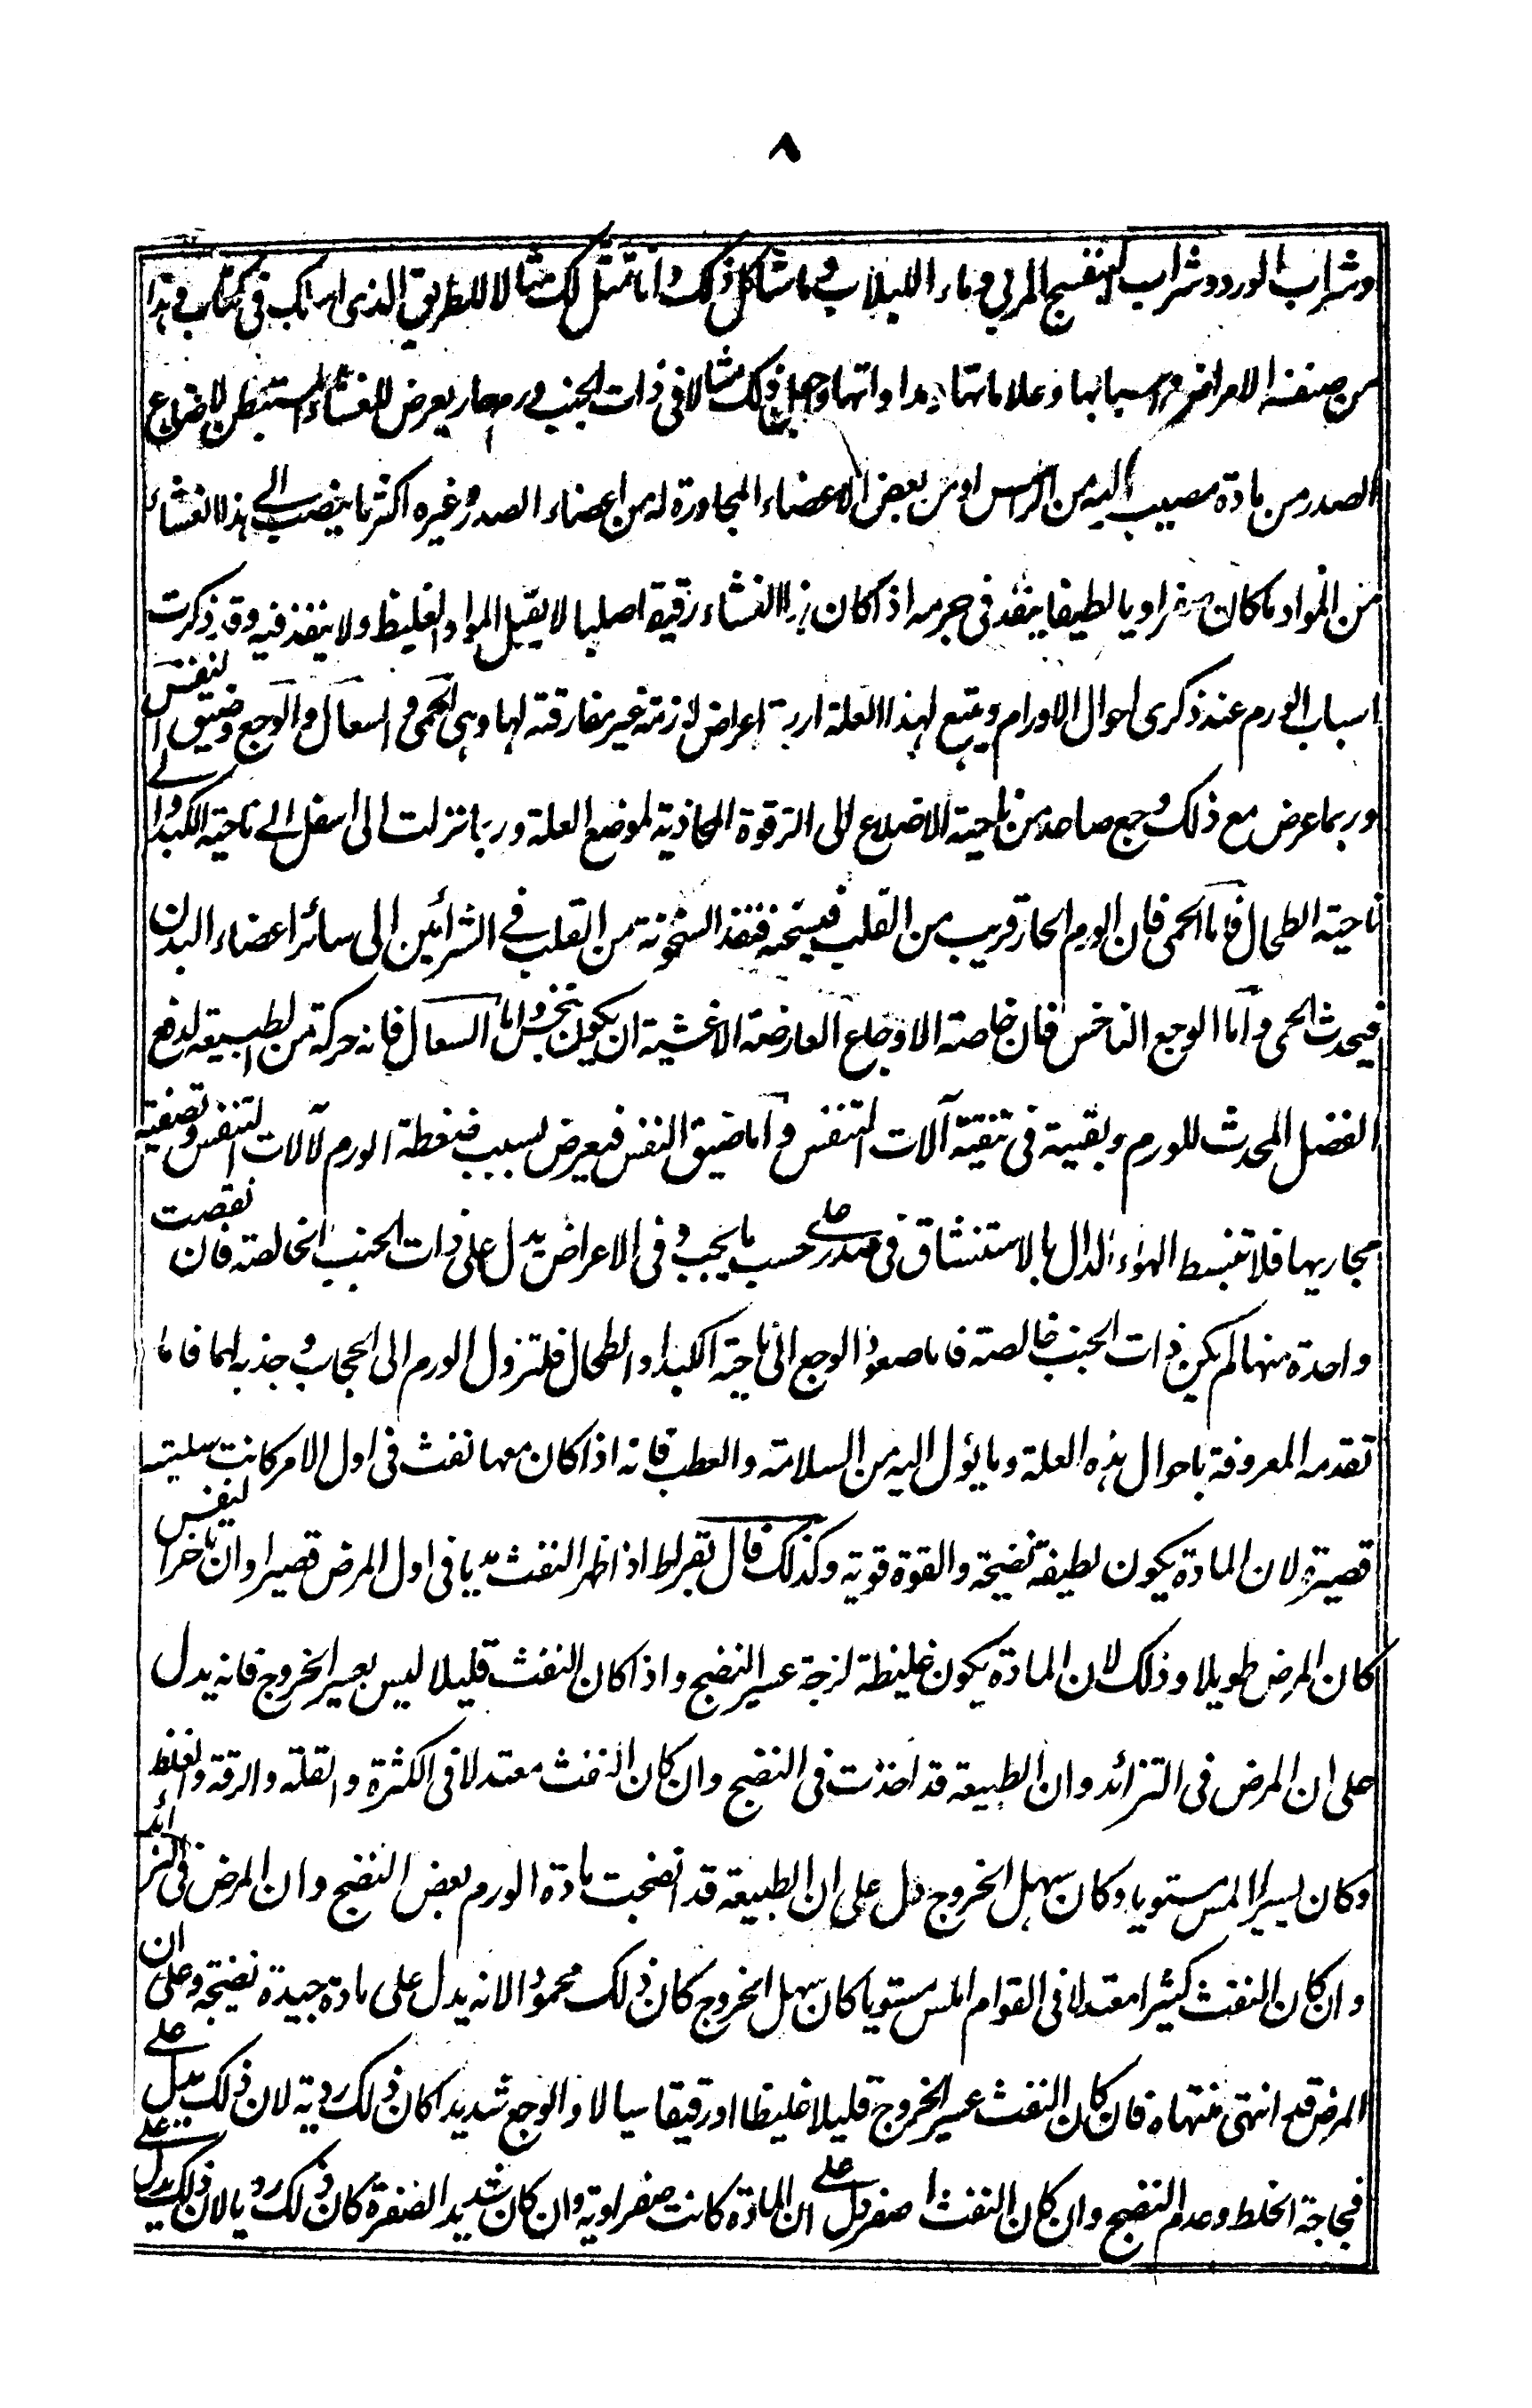 ٨
وشراب الورد وشراب البنفسج المربي وماء اللبلاب وما شاكل ذلك وانا تمثل لك مثالا للطريق الذى اسلك فى كتابي هذا
من صفة الامراض واسبابها وعلاماتها ومداواتها واجعل ذلك مثالا فى ذات الجنب ورم حار يعرض للغشاء المستبطن لاضلاع
الصدر من مادة مصيب اليه من الراس او من بعض الاعضاء المجاورة له من اعضاء الصدر وغيره اكثر ما ينصب الى هذا الغشاء
من المواد ما كان صفراويا لطيفا ينفذ فى جرمه اذا كان هذا الغشاء رقيقا صلبا لا يقبل المواد الغليظ ولا ينفذ فيه وقد ذكرت
اسباب الورم عند ذكرى احوال الاورام ويتبع لهذا العلة اربة اعراض لازمة غير مفارقة لها وهى الحمى والسعال والوجع وضيق النفس
وربما عرض مع ذلك وجع صاعد من ناحية الاضلاع الى الترقوة المحاذية لموضع العلة وربما نزلت الى اسفل الى ناحية الكبد والى
ناحية الطحال فاما الحمى فان الورم الحار قريب من القلب فيسخنه فتنفذ السخونة من القلب فى الشرائين الى سائر اعضاء البدن
فيحدث الحمى واما الوجع الناخس فان خاصة الاوجاع العارضة الاغشية ان يكون بنخس واما السعال فانه حركة من الطبيعة لدفع
الفضل المحدث للورم وبقية فى تنقية آلات التنفس واما ضيق النفس فيعرض بسبب ضغطة الورم لآلات التنفس وتضيق
مجاريها فلا تنبسط الهواء الدال بالاستنشاق فى صدر على حسب ما يجب وفى الاعراض يدل على ذات الجنب الخالصة فان نقصت
واحدة منها لم يكن ذات الجنب خالصة فاما صعود الوجع الى ناحية الكبد او الطحال فلنزول الورم الى الحجاب وجذبه لهما فاما
تقدمه المعروفة باحوال هذه العلة وما يؤل اليه من السلامة والعطب فانه اذا كان معها نفث فى اول الامر كانت سليمة
قصيرة لان المادة يكون لطيفة نضيجة والقوة قوية وكذلك قال بقراط اذا ظهر النفث بديا فى اول المرض قصيرا وان تاخر النفس
كان المرض طويلا وذلك لان المادة يكون غليظة لزجة عسير النضج واذا كان النفث قليلا ليس بعسير الخروج فانه يدل
على ان المرض فى التزائد وان الطبيعة قد اخذت فى النضج وان كان النفث معتدلا فى الكثرة والقلة والرقة والغلظ
وكان يسيرا املس مستويا وكان سهل الخروج دل على ان الطبيعة قد انضجت مادة الورم بعض النضج وان المرض فى التزائد
وان كان النفث كثيرا معتدلا فى القوام املس مستويا كان سهل الخروج كان ذلك محمودا لانه يدل على مادة جيدة نضيجة وعلى ان
المرض قد انتهى منتهاه فان كان النفث عسير الخروج قليلا غليظا او رقيقا سيالا والوجع شديدا كان ذلك ردية لان ذلك يدل على
فجاجة الخلط وعدم النضج وان كان النفث اصفر دل على ان المادة كانت صفراوية وان كان شديد الصفرة كان ذلك رديا لان ذلك يدل على